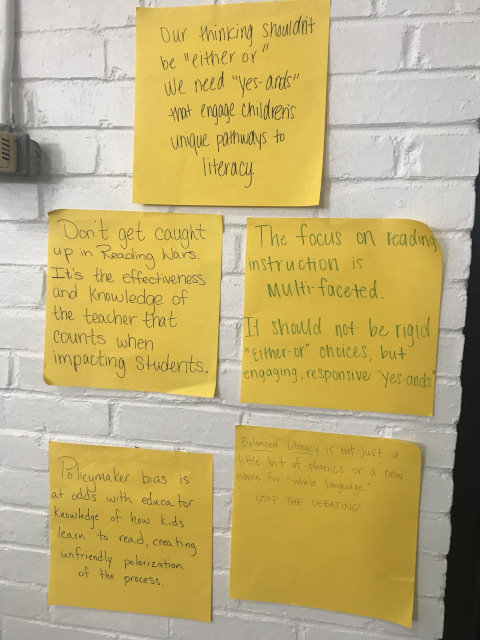 Our thinking shouldn't
be "either or"
We need "yes-ands"
that engage children's
unique pathways to
literacy
Don't get caught
up in Reading Wars.
It's the effectiveness
and knowledge of
the teacher that
counts when
impacting students.
The focus on reading
instruction is
multi-faceted.
It should not be rigid
"either-or" choices, but
engaging, responsive "yes-ands"
Policymaker bias is
at odds with educator
knowledge of how kids
learn to read, creating
unfriendly polarization
of the process.
Balanced Literacy is not just a
little bit of phonics or a new
name for "whole language."
STOP THE DEBATING!